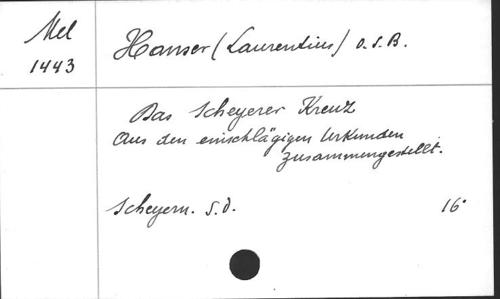 Mel
1443
Hanser (Laurentius) O.S.B.
Das Scheyerer Kreuz
Aus den einschlägigen Urkunden
zusammengestellt.
Scheyern. S.d.
16°